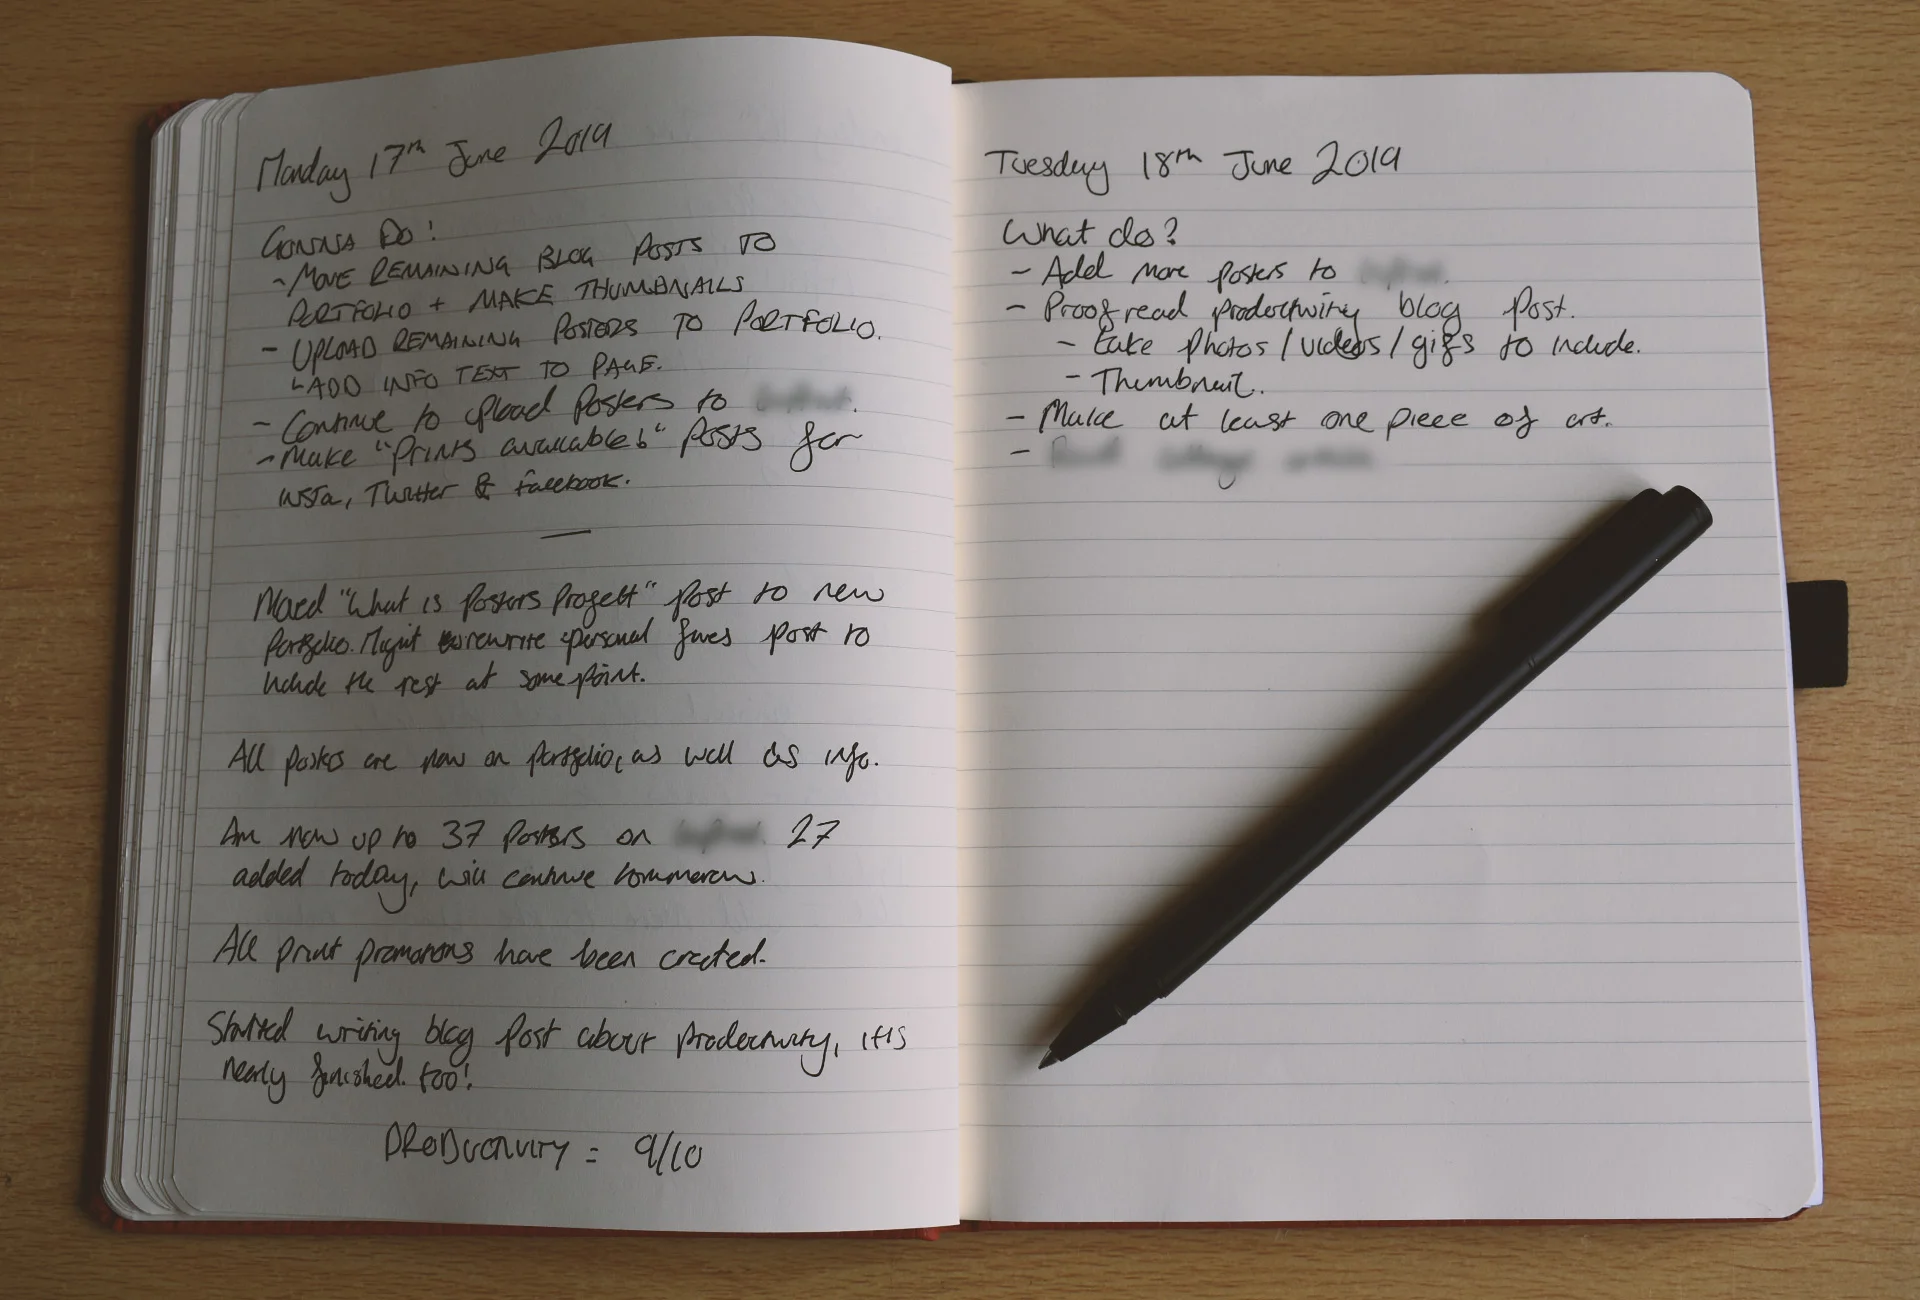 Monday 17th June 2019
GONNA DO!
- MOVE REMAINING BLOG POSTS TO
PORTFOLIO + MAKE THUMBNAILS
- UPLOAD REMAINING POSTERS TO PORTFOLIO.
↳ADD INFO TEXT TO PAGE.
- Continue to upload posters to
- Make "Prints available!" posts for
insta, Twitter & facebook.
—
Moved "What is Posters Project" post to new
portfolio. Might rewrite personal faves post to
include the rest at some point.
All posters are now on portfolio, as well as info.
Am now up to 37 posters on 27
added today, will continue tommorow.
All print promotions have been created.
Started writing blog post about productivity, it is
nearly finished too!
PRODUCTIVITY = 9/10
Tuesday 18th June 2019
What do?
- Add more posters to
- Proof read productivity blog post.
- take photos/videos/gifs to include.
- Thumbnail.
- Make at least one piece of art.
-